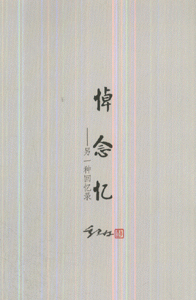 悼念忆
——另一种回忆录